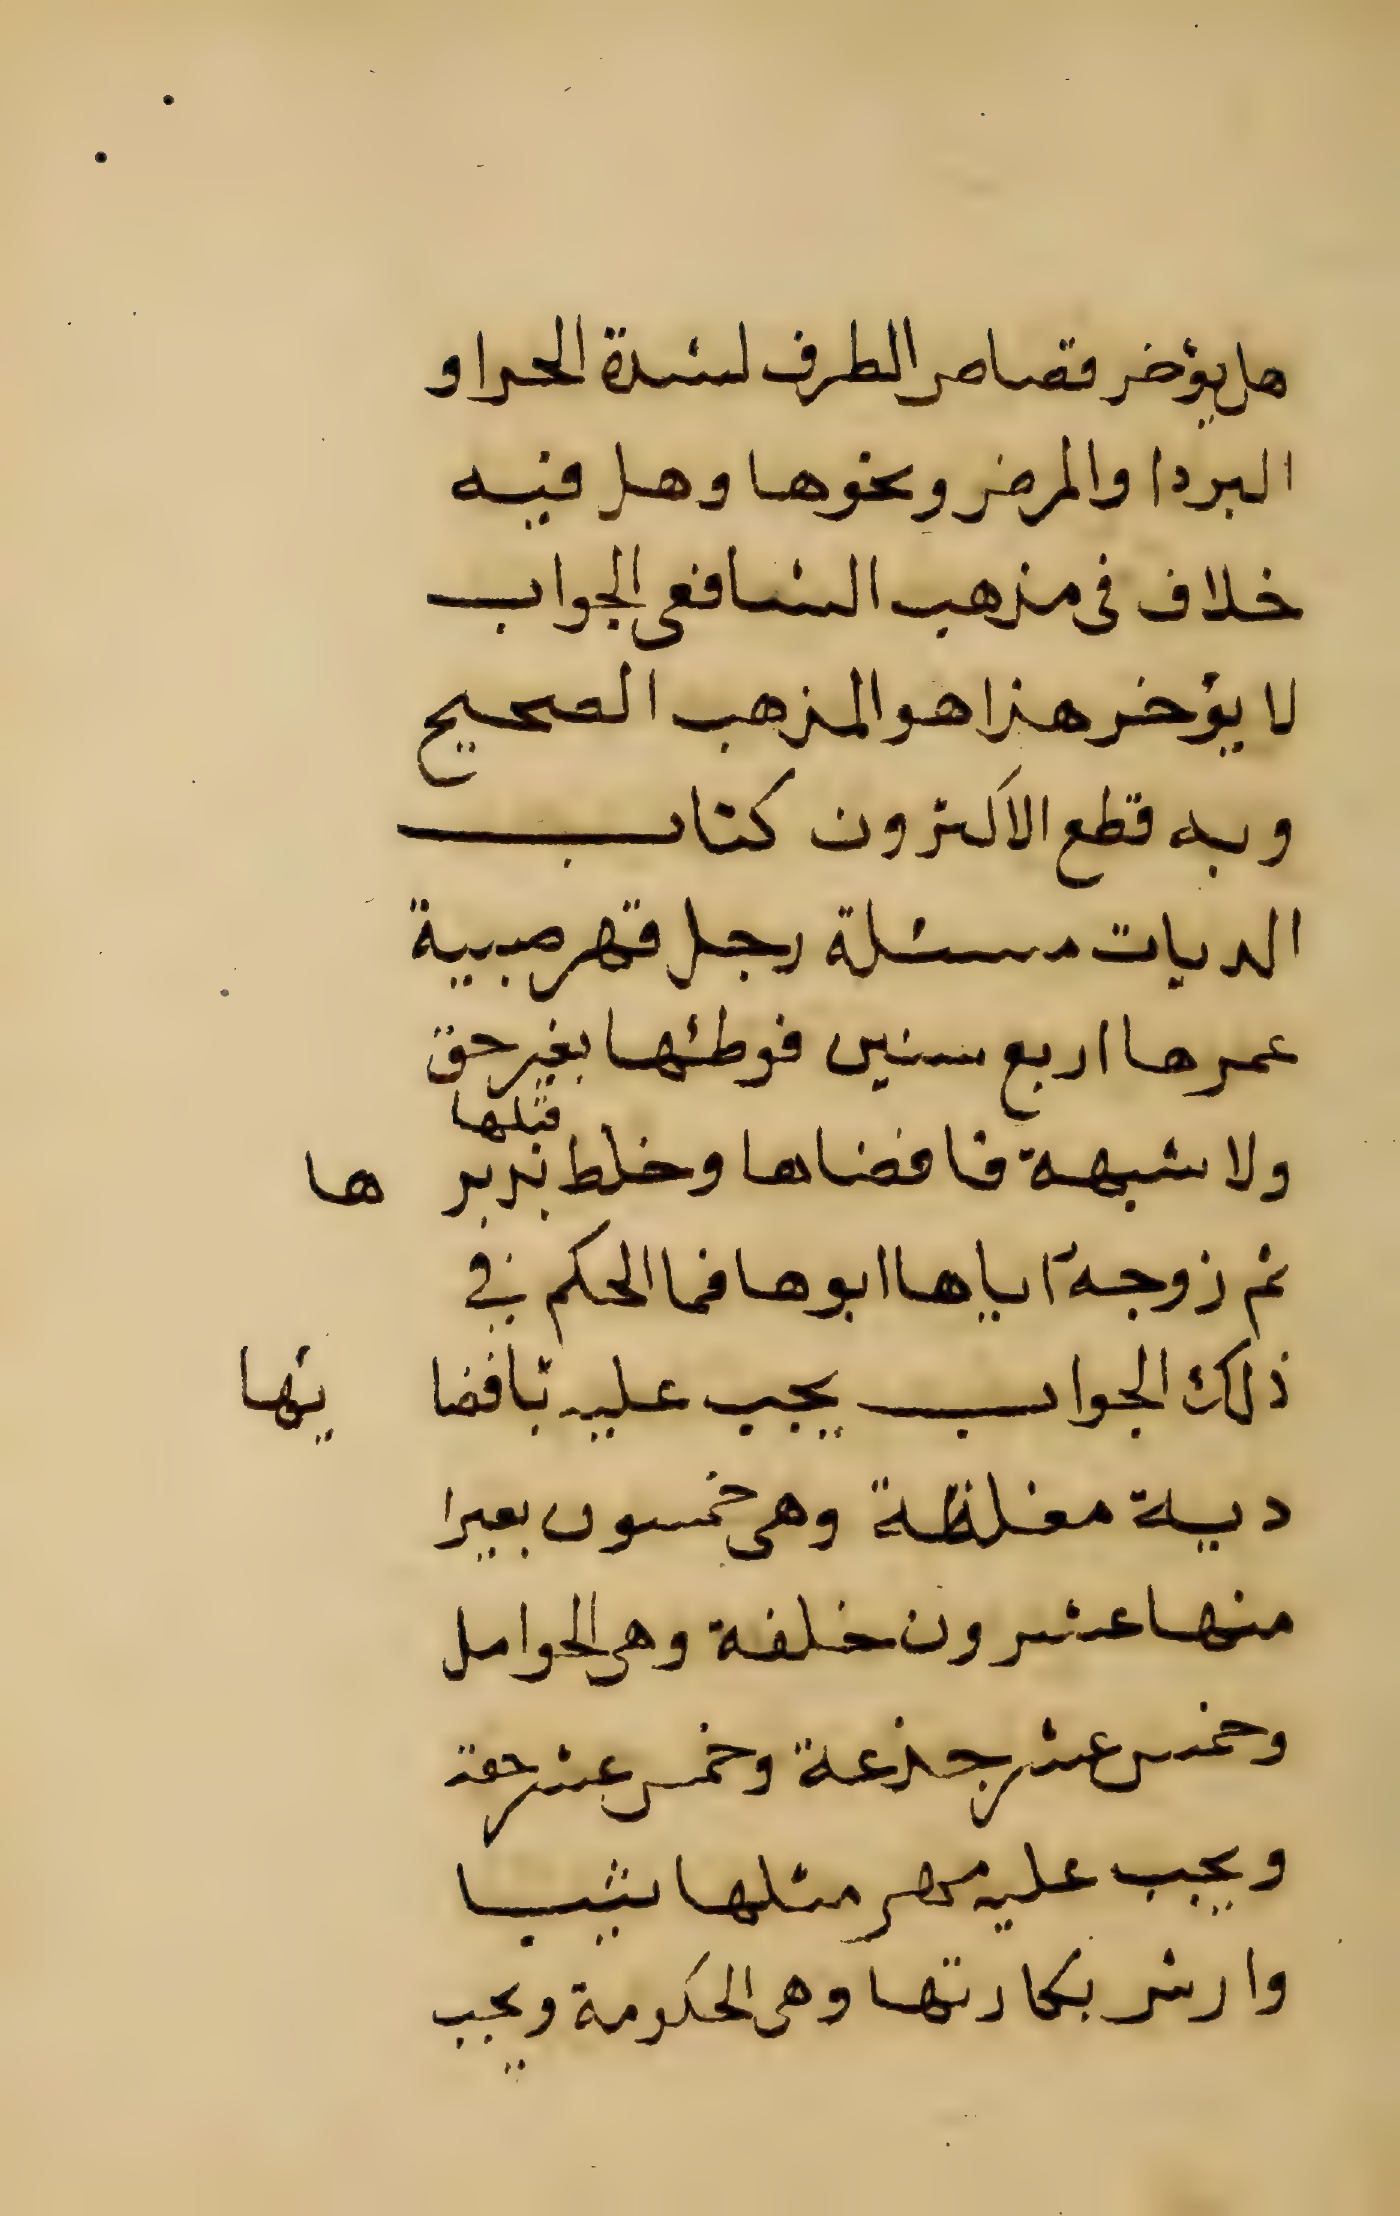 هل يؤخر قصاص الطرف لشدة الحر او
البرد او المرض ونحوها وهل فيه
خلاف فى مذهب الشافعى الجواب
لا يؤخر هذا هو المذهب الصحيح
وبه قطع الاكثرون كتاب
الديات مسئلة رجل قهر صبية
عمرها اربع سنين فوطئها بغير حق
قبلها
ولا شبهة فافضاها وخلط بدبر ها
ثم زوجه اياها ابوها فما الحكم في
ذلك الجواب يجب عليه بافضا ئها
دية مغلظة وهى خمسون بعيرا
منها عشرون خلفة وهى الحوامل
وخمس عشر جذعة وخمس عشر حقة
ويجب عليه مهر مثلها ثيبا
وارش بكارتها وهى الحكومة ويجب